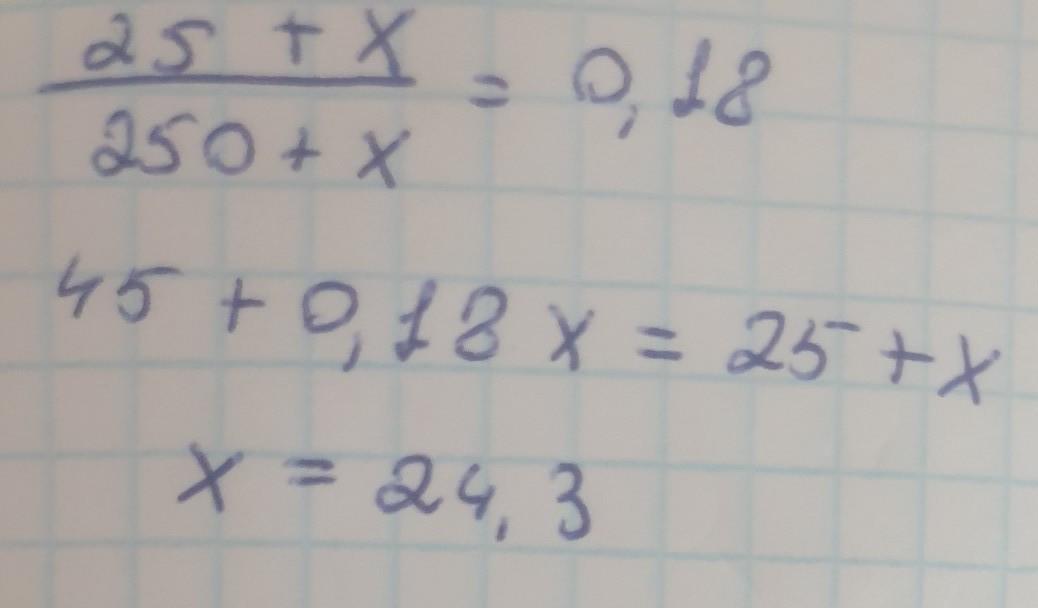 25 + x
250 + x
= 0,18
45 + 0,18 x = 25 + x
x = 24,3